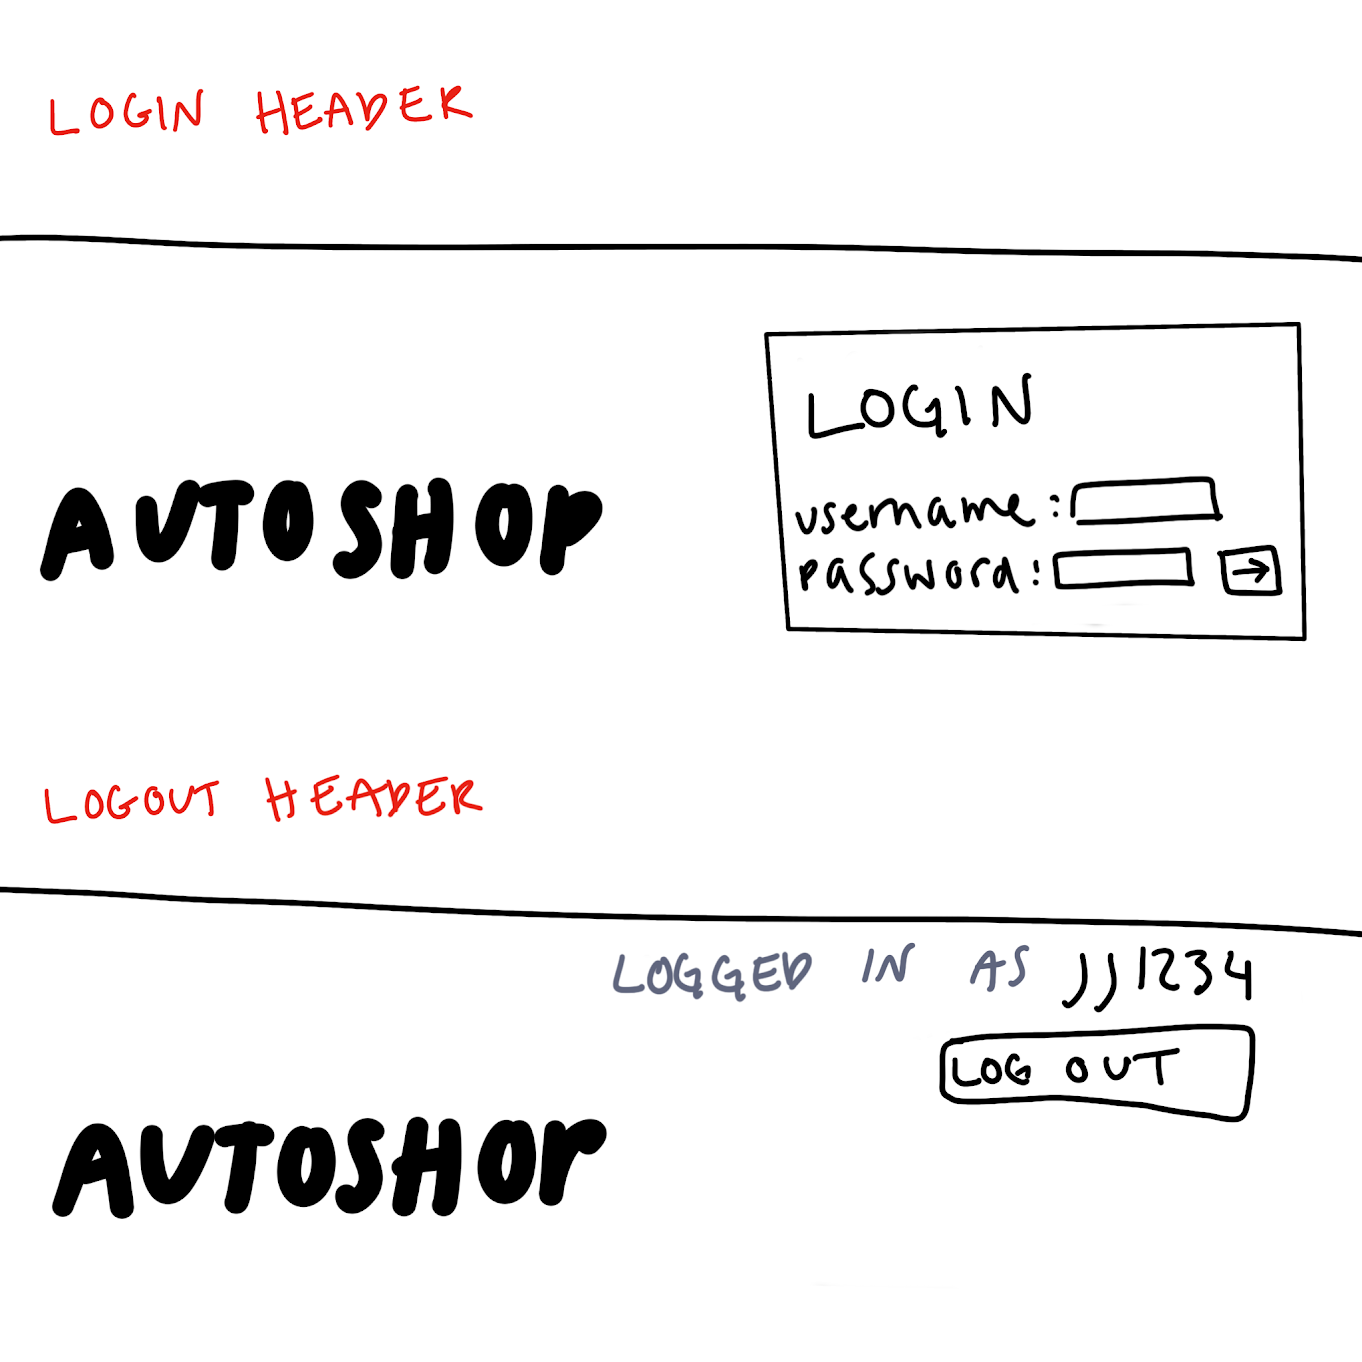 LOGIN HEADER
AUTOSHOP
LOGIN
username:
password: →
LOGOUT HEADER
LOGGED IN AS jj1234
LOG OUT
AUTOSHOP